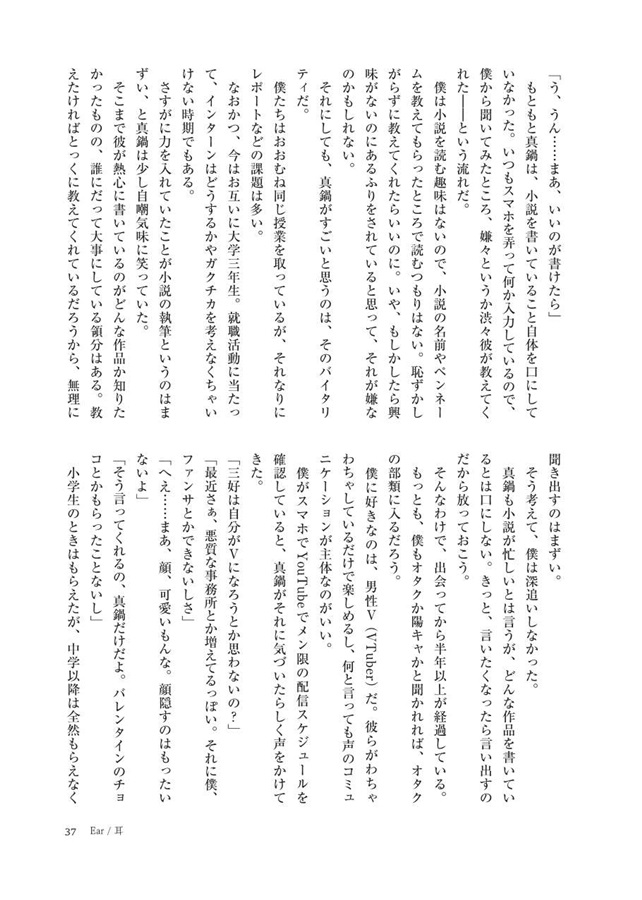 「う、うん……まあ、いいのが書けたら」
もともと真鍋は、小説を書いていること自体を口にして
いなかった。いつもスマホを弄って何か入力しているので、
僕から聞いてみたところ、嫌々というか渋々彼が教えてく
れた――という流れだ。
僕は小説を読む趣味はないので、小説の名前やペンネー
ムを教えてもらったところで読むつもりはない。恥ずかし
がらずに教えてくれたらいいのに。いや、もしかしたら興
味がないのにあるふりをされていると思って、それが嫌な
のかもしれない。
それにしても、真鍋がすごいと思うのは、そのバイタリ
ティだ。
僕たちはおおむね同じ授業を取っているが、それなりに
レポートなどの課題は多い。
なおかつ、今はお互いに大学三年生。就職活動に当たっ
て、インターンはどうするかやガクチカを考えなくちゃい
けない時期でもある。
さすがに力を入れていたことが小説の執筆というのはま
ずい、と真鍋は少し自嘲気味に笑っていた。
そこまで彼が熱心に書いているのがどんな作品か知りた
かったものの、誰にだって大事にしている領分はある。教
えたければとっくに教えてくれているだろうから、無理に
聞き出すのはまずい。
そう考えて、僕は深追いしなかった。
真鍋も小説が忙しいとは言うが、どんな作品を書いてい
るとは口にしない。きっと、言いたくなったら言い出すの
だから放っておこう。
そんなわけで、出会ってから半年以上が経過している。
もっとも、僕もオタクか陽キャかと聞かれれば、オタク
の部類に入るだろう。
僕に好きなのは、男性V（VTuber）だ。彼らがわちゃ
わちゃしているだけで楽しめるし、何と言っても声のコミュ
ニケーションが主体なのがいい。
僕がスマホでYouTubeでメン限の配信スケジュールを
確認していると、真鍋がそれに気づいたらしく声をかけて
きた。
「三好は自分がVになろうとか思わないの？」
「最近さぁ、悪質な事務所とか増えてるっぽい。それに僕、
ファンサとかできないしさ」
「へえ……まあ、顔、可愛いもんな。顔隠すのはもったい
ないよ」
「そう言ってくれるの、真鍋だけだよ。バレンタインのチョ
コとかもらったことないし」
小学生のときはもらえたが、中学以降は全然もらえなく
37 Ear / 耳